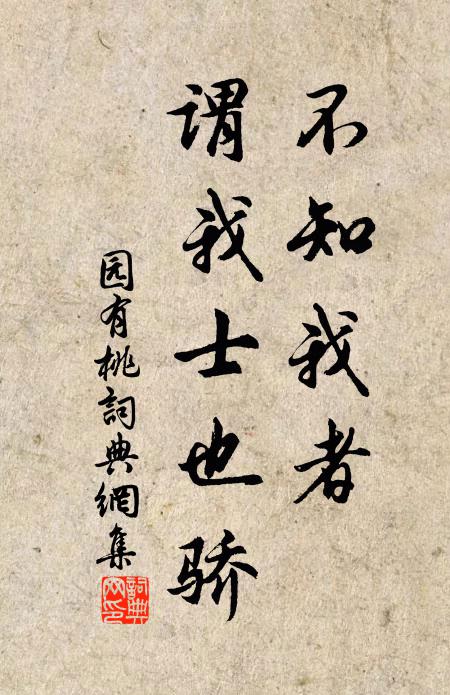 不知我者
谓我士也骄
园有桃詞典網集
詞典